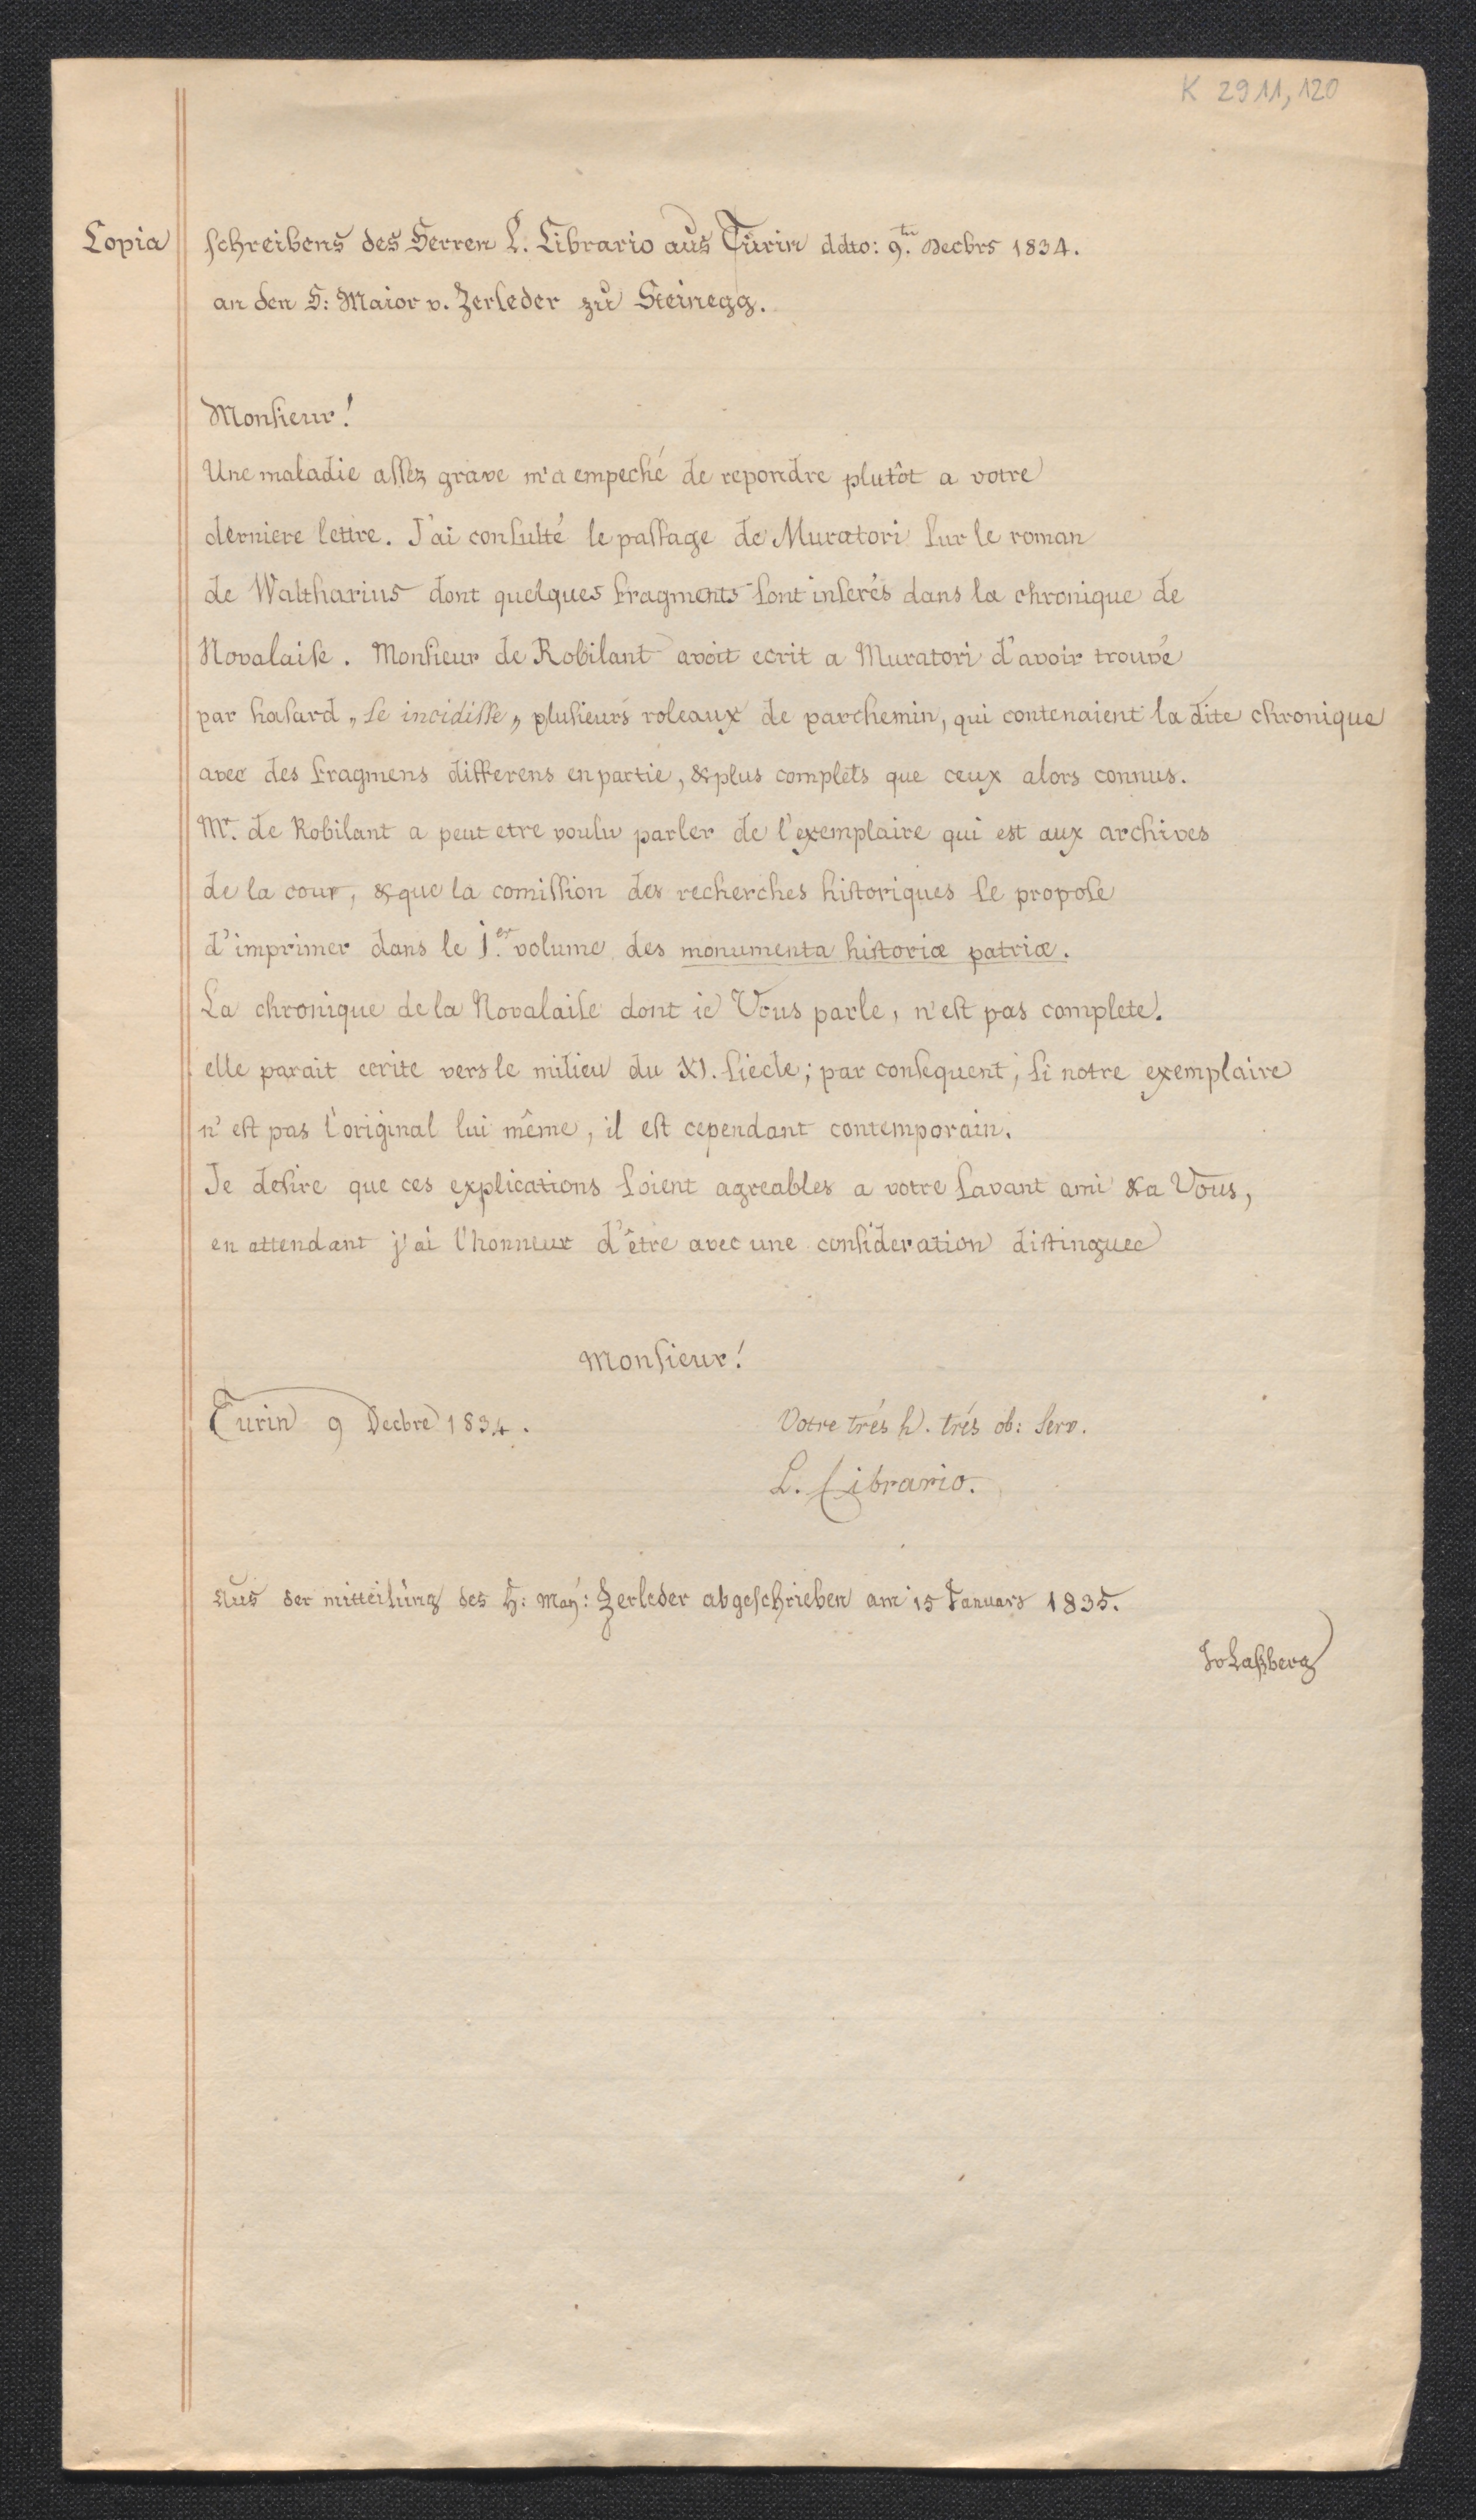 K 2911,120
Copia schreibens des Herren L. Cibrario aus Turin ddto: 9.ten Decbrs 1834.
an den H: Maior v. Zerleder zu Steinegg.
Monsieur!
Une maladie assez grave m'a empeché de repondre plutôt a votre
derniere lettre. J'ai consulté le passage de Muratori sur le roman
de Waltharius dont quelques fragments sont inserés dans la chronique de
Novalaise. Monsieur de Robilant avoit ecrit a Muratori d'avoir trouvé
par hasard „se incidisse„ plusieurs roleaux de parchemin, qui contenaient la dite chronique
avec des fragmens differens en partie, & plus complets que ceux alors connus.
Mr. de Robilant a peut etre voulu parler de l'exemplaire qui est aux archives
de la cour, & que la comission des recherches historiques se propose
d'imprimer dans le 1.er volume des monumenta historiæ patriæ.
La chronique de la Novalaise dont ie Vous parle, n'est pas complete.
elle parait ecrite vers le milieu du XI. siecle; par consequent, si notre exemplaire
n'est pas l'original lui même, il est cependant contemporain.
Je desire que ces explications soient agreables a votre savant ami & a Vous,
en attendant j'ai l'honneur d'être avec une consideration distinguee
Monsieur!
Turin 9 Decbre 1834.
Votre trés h. trés ob: serv.
L. Cibrario.
Aus der mitteilung des H: May: Zerleder abgeschrieben am 15 Januars 1835.
JvLaßberg